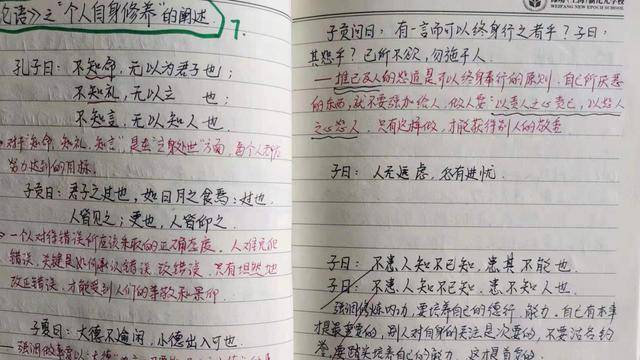 论语》之"个人自身修养"的阐述
7.
孔子曰: 不知命, 无以为君子也;
不知礼, 无以立 也;
不知言, 无以知人也.
对于"知命、知礼、知言", 是在"立身处世"方面, 每个人都
努力达到的目标.
子贡曰: 君子之过也, 如日月之食焉: 过也.
人皆见之; 更也, 人皆仰之.
一个人对待错误所应该采取的正确态度. 人难免犯
错误, 关键是如何承认错误, 改错误. 只有坦然地
改正错误, 才能受到人们的尊敬和景仰
子夏曰: 大德不逾闲, 小德出入可也.
NEW EPOCH SCHOOL
子贡问曰: 有一言而可以终身行之者乎? 子曰:
其恕乎? 己所不欲, 勿施于人.
推己及人的恕道是可以终身奉行的原则, 自己所厌恶
的东西, 就不要强加给人, 做人要"以责人之心责己, 以恕人
之心恕人. 只有这样做, 才能获得别人的敬重
子曰: 人无远虑, 必有近忧
子曰: 不患人知不己知, 患其不能也.
子曰: 不患人知不己知, 患不知人也.
强调修炼内功, 要培养自己的德行、能力. 自己有本事
才最重要的, 别人对自身的关注是次要的, 不要沽名钓
誉, 要踏实培养自己的能力 这才最